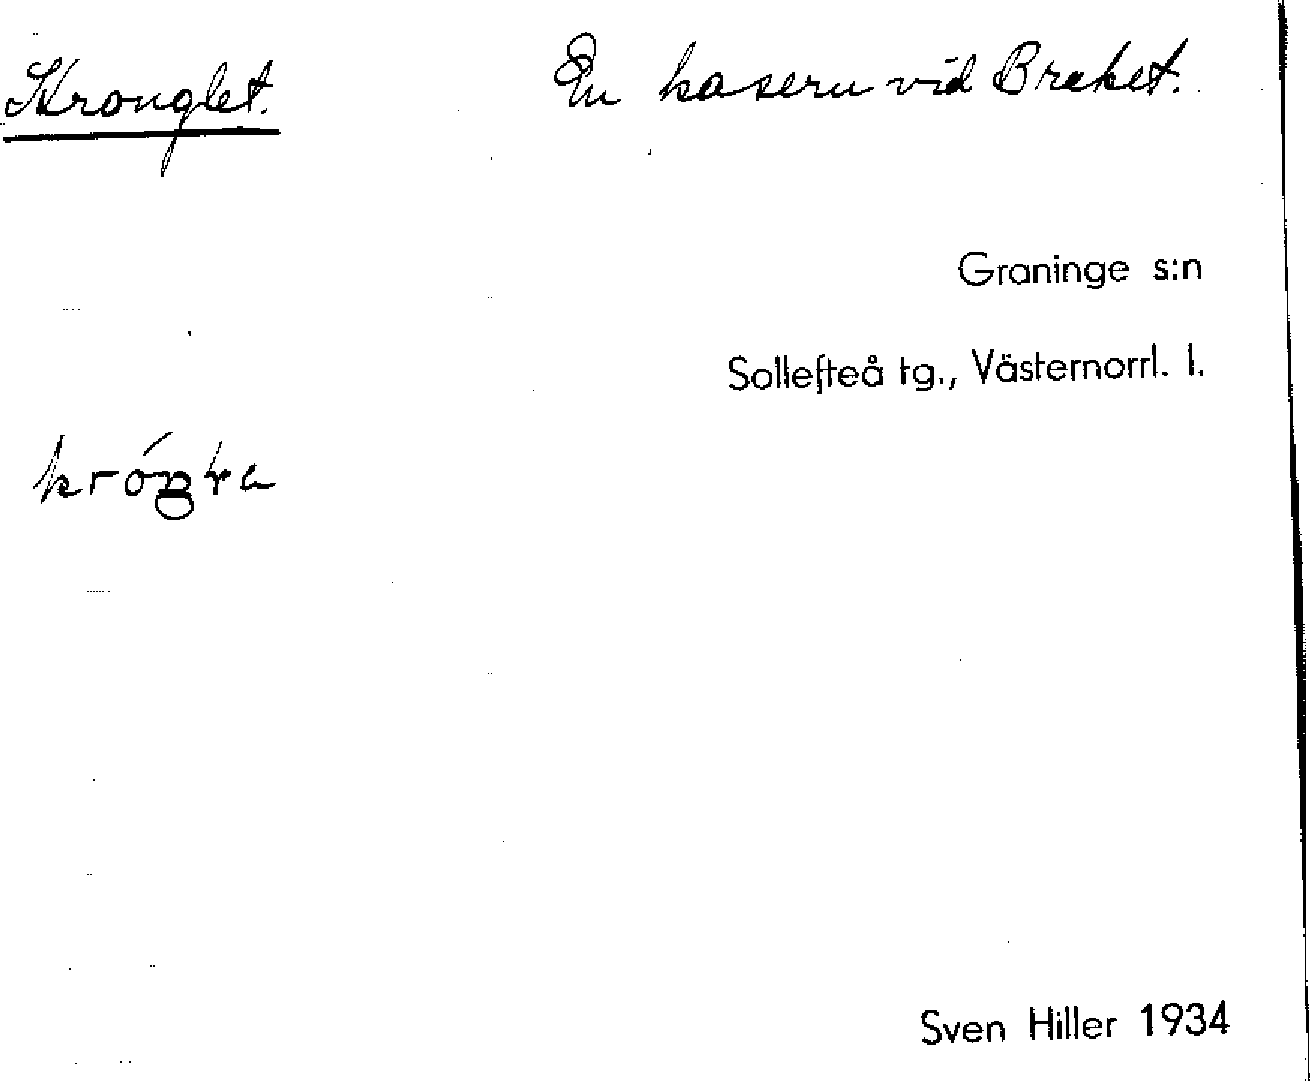 Kronglet.
En kasern vid Breket.
Graninge s:n
Sollefteå tg., Västernorrl. l.
Sven Hiller 1934